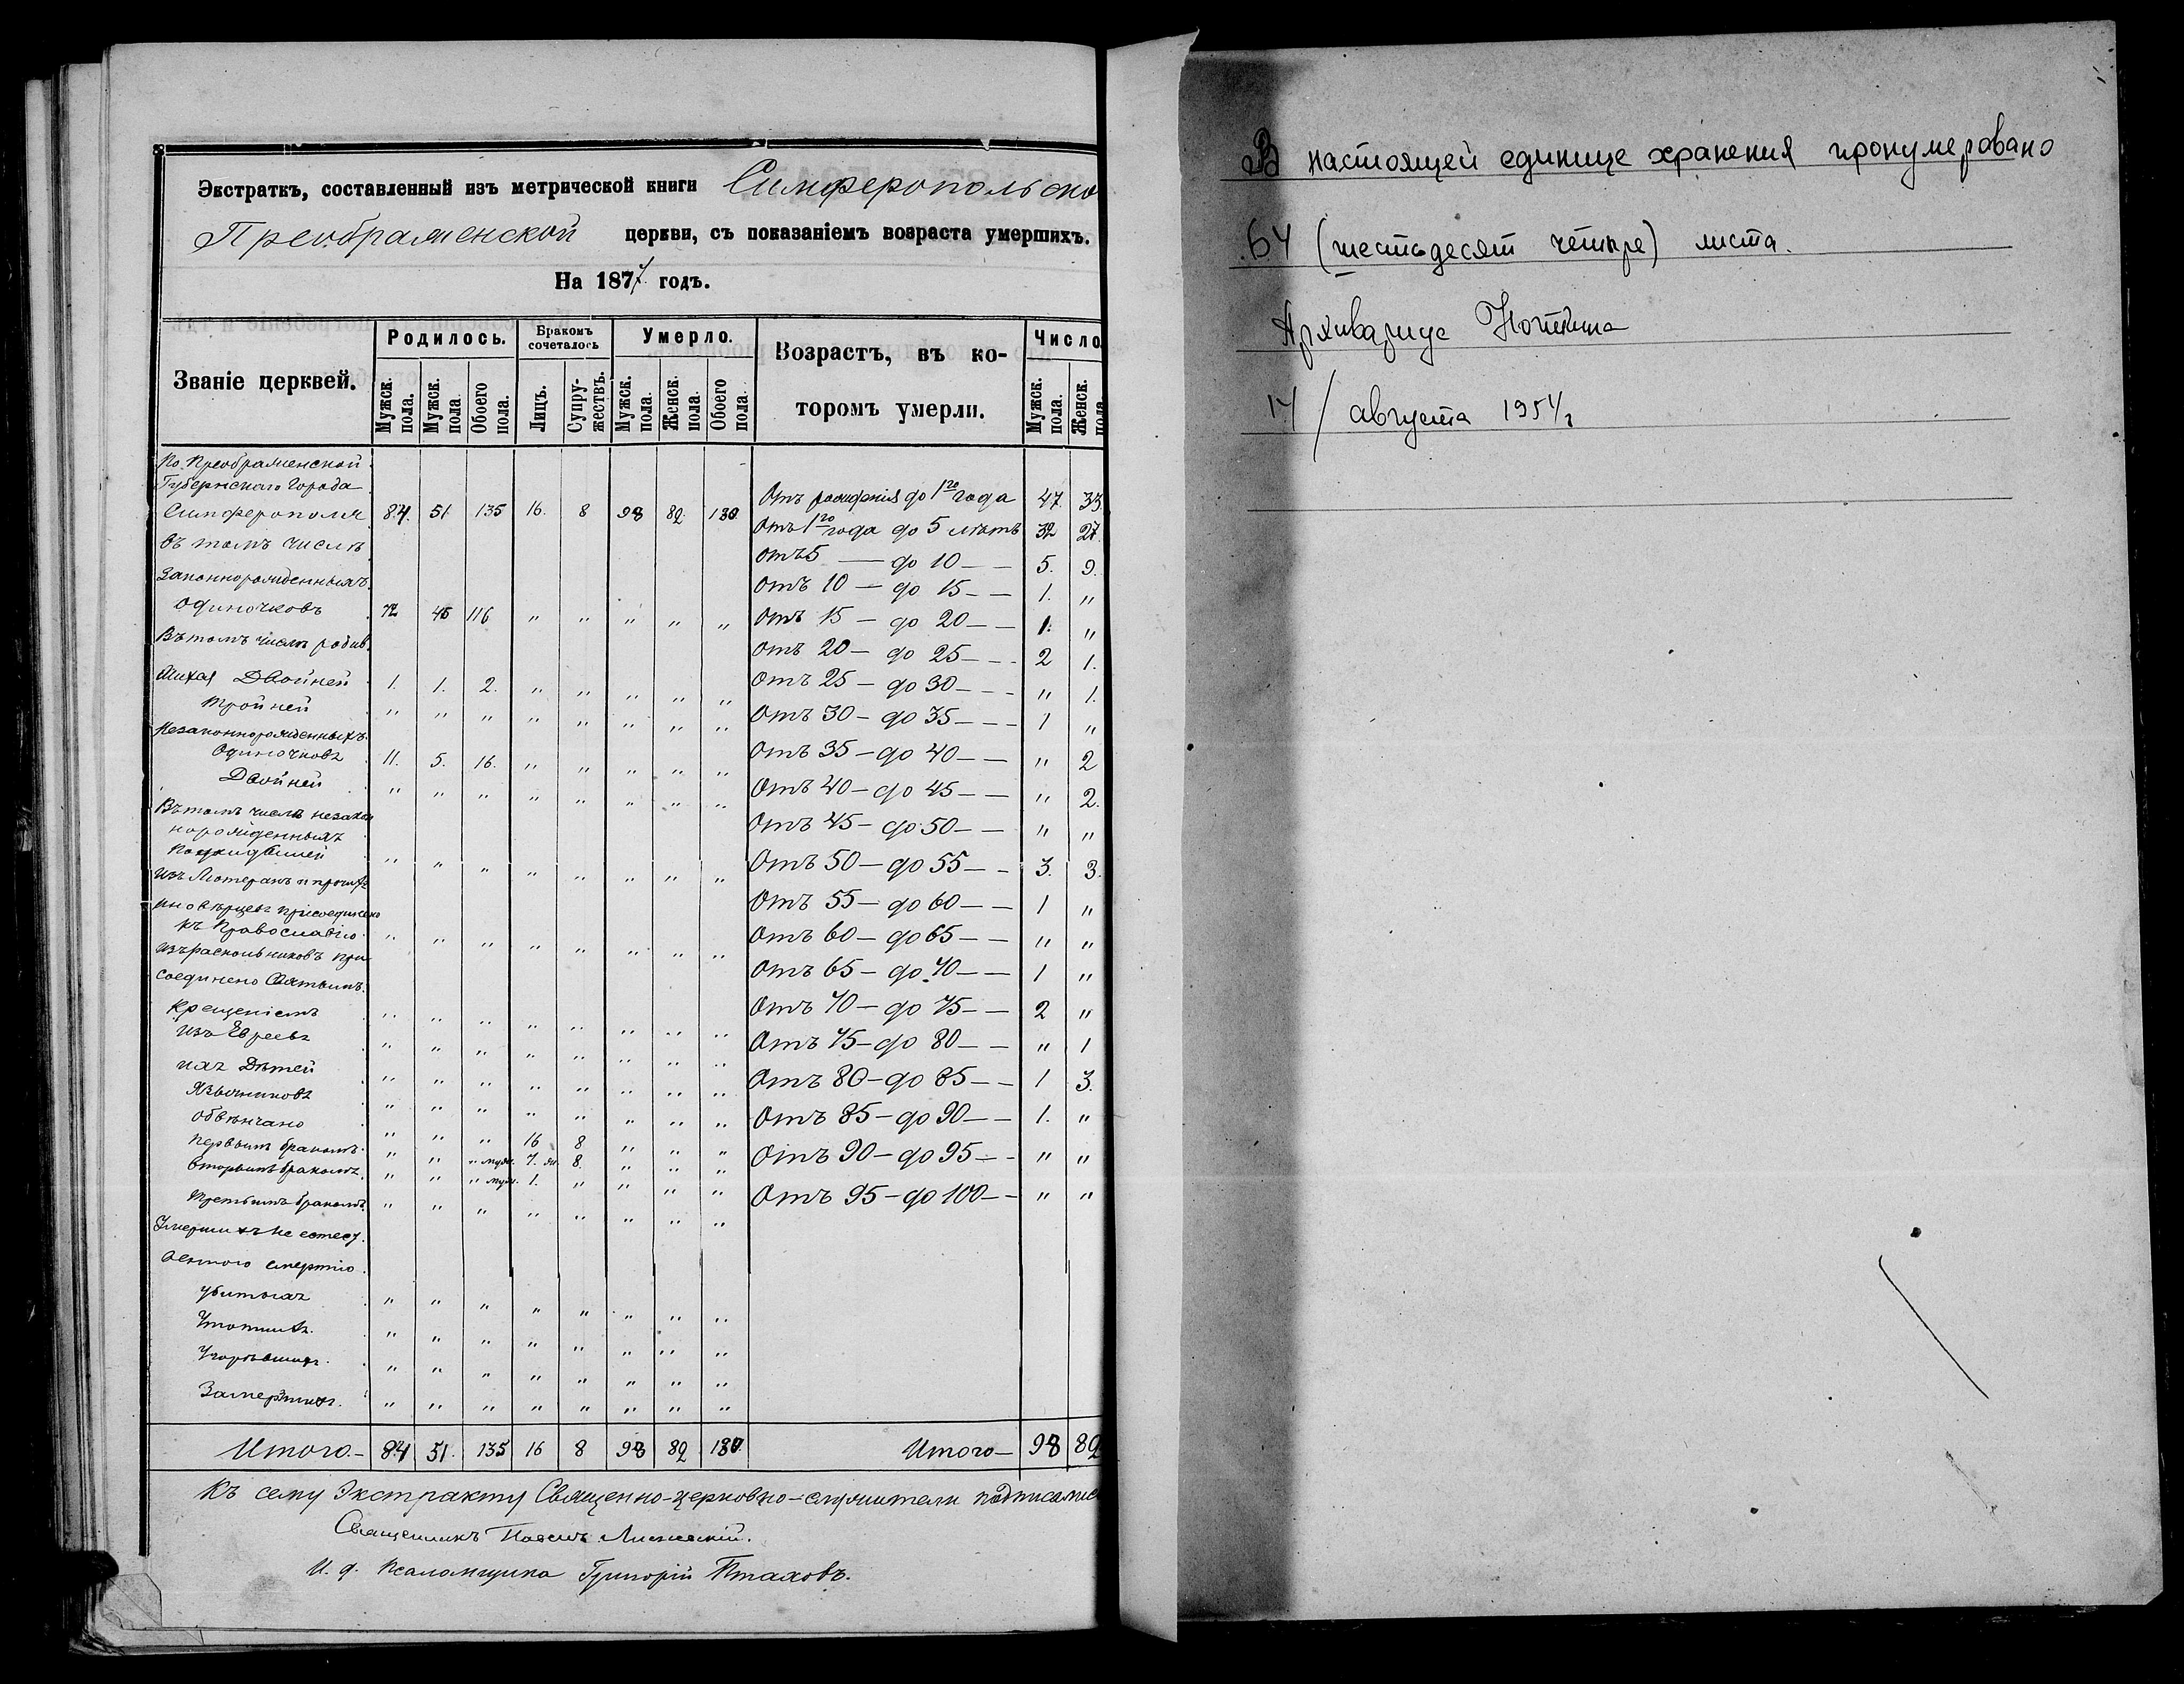 Экстрактъ, составленный изъ метрической книги Симферопольско
Преображенской церкви, съ показаніемъ возраста умершихъ.
На 1877 годъ.
Званіе церквей.
Родилось.
Бракомъ сочеталось
Умерло.
Возрастъ, въ которомъ умерли.
Число
Мужск. пола.
Мужск. пола.
Обоего пола.
Лицъ.
Супружествъ.
Мужск. пола.
Женск. пола.
Обоего пола.
Мужск. пола.
Женск. пола
По Преображенской
Губернскаго Города
Симферополя 84. 51. 135 16. 8 98 82.
въ томъ числѣ
Законнорожденныхъ
Одиночковъ 72 45 116 " " " " "
Въ томъ числѣ родив.
шихся Двойней 1. 1. 2. " " " " "
Тройней " " " " " " " "
Незаконнорожденныхъ
Одиночковъ 11. 5. 16. " " " " "
Двойней " " " " " " " "
Въ томъ числѣ незакон
норожденныхъ
" " " " " " " "
Изъ Лютеранъ и прочихъ
иновѣрцевъ присоединено
къ Православію " " " " " " " "
Изъ раскольниковъ при
соединено Святымъ
Крещеніемъ " " " " " " " "
Изъ Евреевъ " " " " " " " "
ихъ Дѣтей " " " " " " " "
Язычниковъ " " " " " " " "
Обвѣнчано " " " 16 8 " " "
Первымъ бракомъ " " " муж. 7. ж. 8. " " "
Вторымъ бракомъ " " " муж. 1. " " " "
Третьимъ бракомъ " " " " " " " "
Умершихъ не естест
венною смертію
Убитыхъ " " " " " " " "
Утопшихъ " " " " " " " "
Угорѣвшихъ " " " " " " " "
Замерзшихъ " " " " " " " "
Итого 84 51. 135 16 8 98 82
Отъ рожденія до 1го года 47. 33
Отъ 1го года до 5 лѣтъ 32 27.
Отъ 5 — до 10 — — 5. 9.
Отъ 10 — до 15 — — 1. "
Отъ 15 — до 20 — — 1. "
Отъ 20 — до 25 — — 2 1.
Отъ 25 — до 30 — — " 1.
Отъ 30 — до 35 — — 1 "
Отъ 35 — до 40 — — " 2
Отъ 40 — до 45 — — " 2.
Отъ 45 — до 50 — — " "
Отъ 50 — до 55 — — 3. 3.
Отъ 55 — до 60 — — 1 "
Отъ 60 — до 65 — — " "
Отъ 65 — до 70 — — 1 "
Отъ 70 — до 75 — — 2 "
Отъ 75 — до 80 — — " 1
Отъ 80 — до 85 — — 1 3.
Отъ 85 — до 90 — — 1. "
Отъ 90 — до 95 — — " "
Отъ 95 — до 100 — — " "
Итого — 98 82
Къ сему Экстракту Священно-церковно-служители подписались
Священникъ
И. д. Псаломщика Григорій Птаховъ.
В настоящей единице хранения пронумеровано
64 (шестьдесят четыре) листа.
Архивариус
14/ августа 1954 г